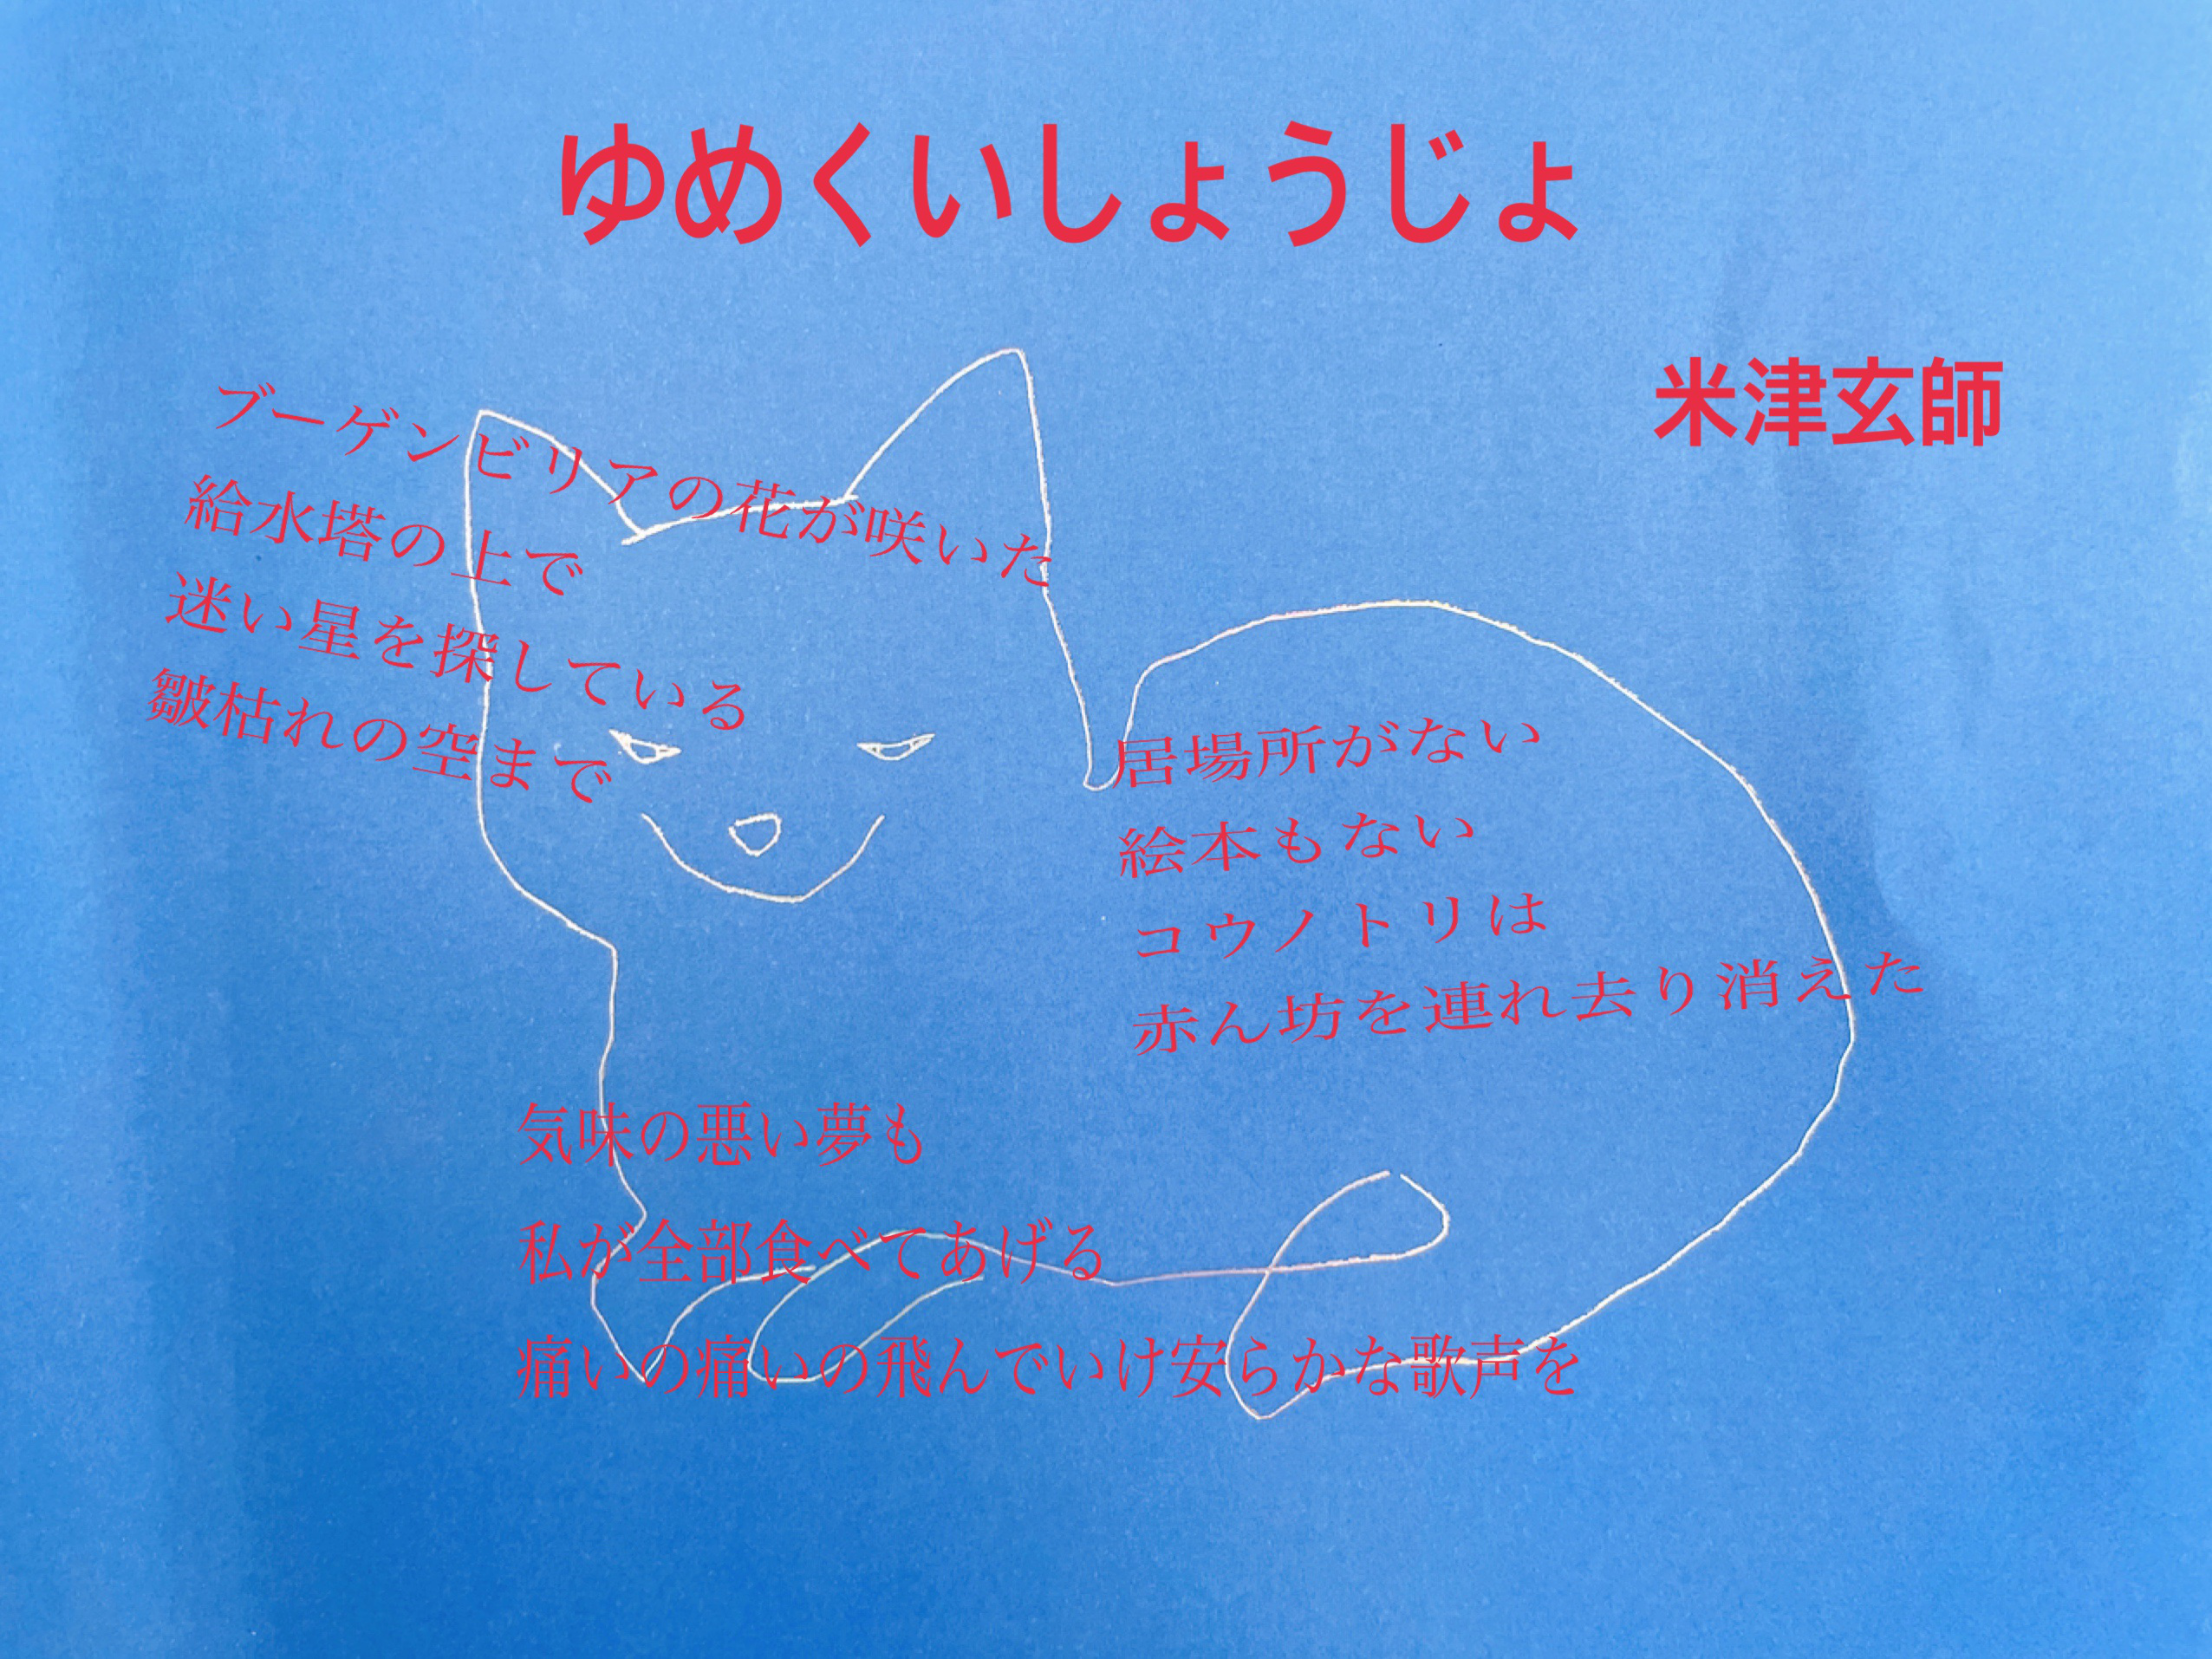 ゆめくいしょうじょ
米津玄師
ブーゲンビリアの花が咲いた
給水塔の上で
迷い星を探している
皺枯れの空まで
居場所がない
絵本もない
コウノトリは
赤ん坊を連れ去り消えた
気味の悪い夢も
私が全部食べてあげる
痛いの痛いの飛んでいけ安らかな歌声を